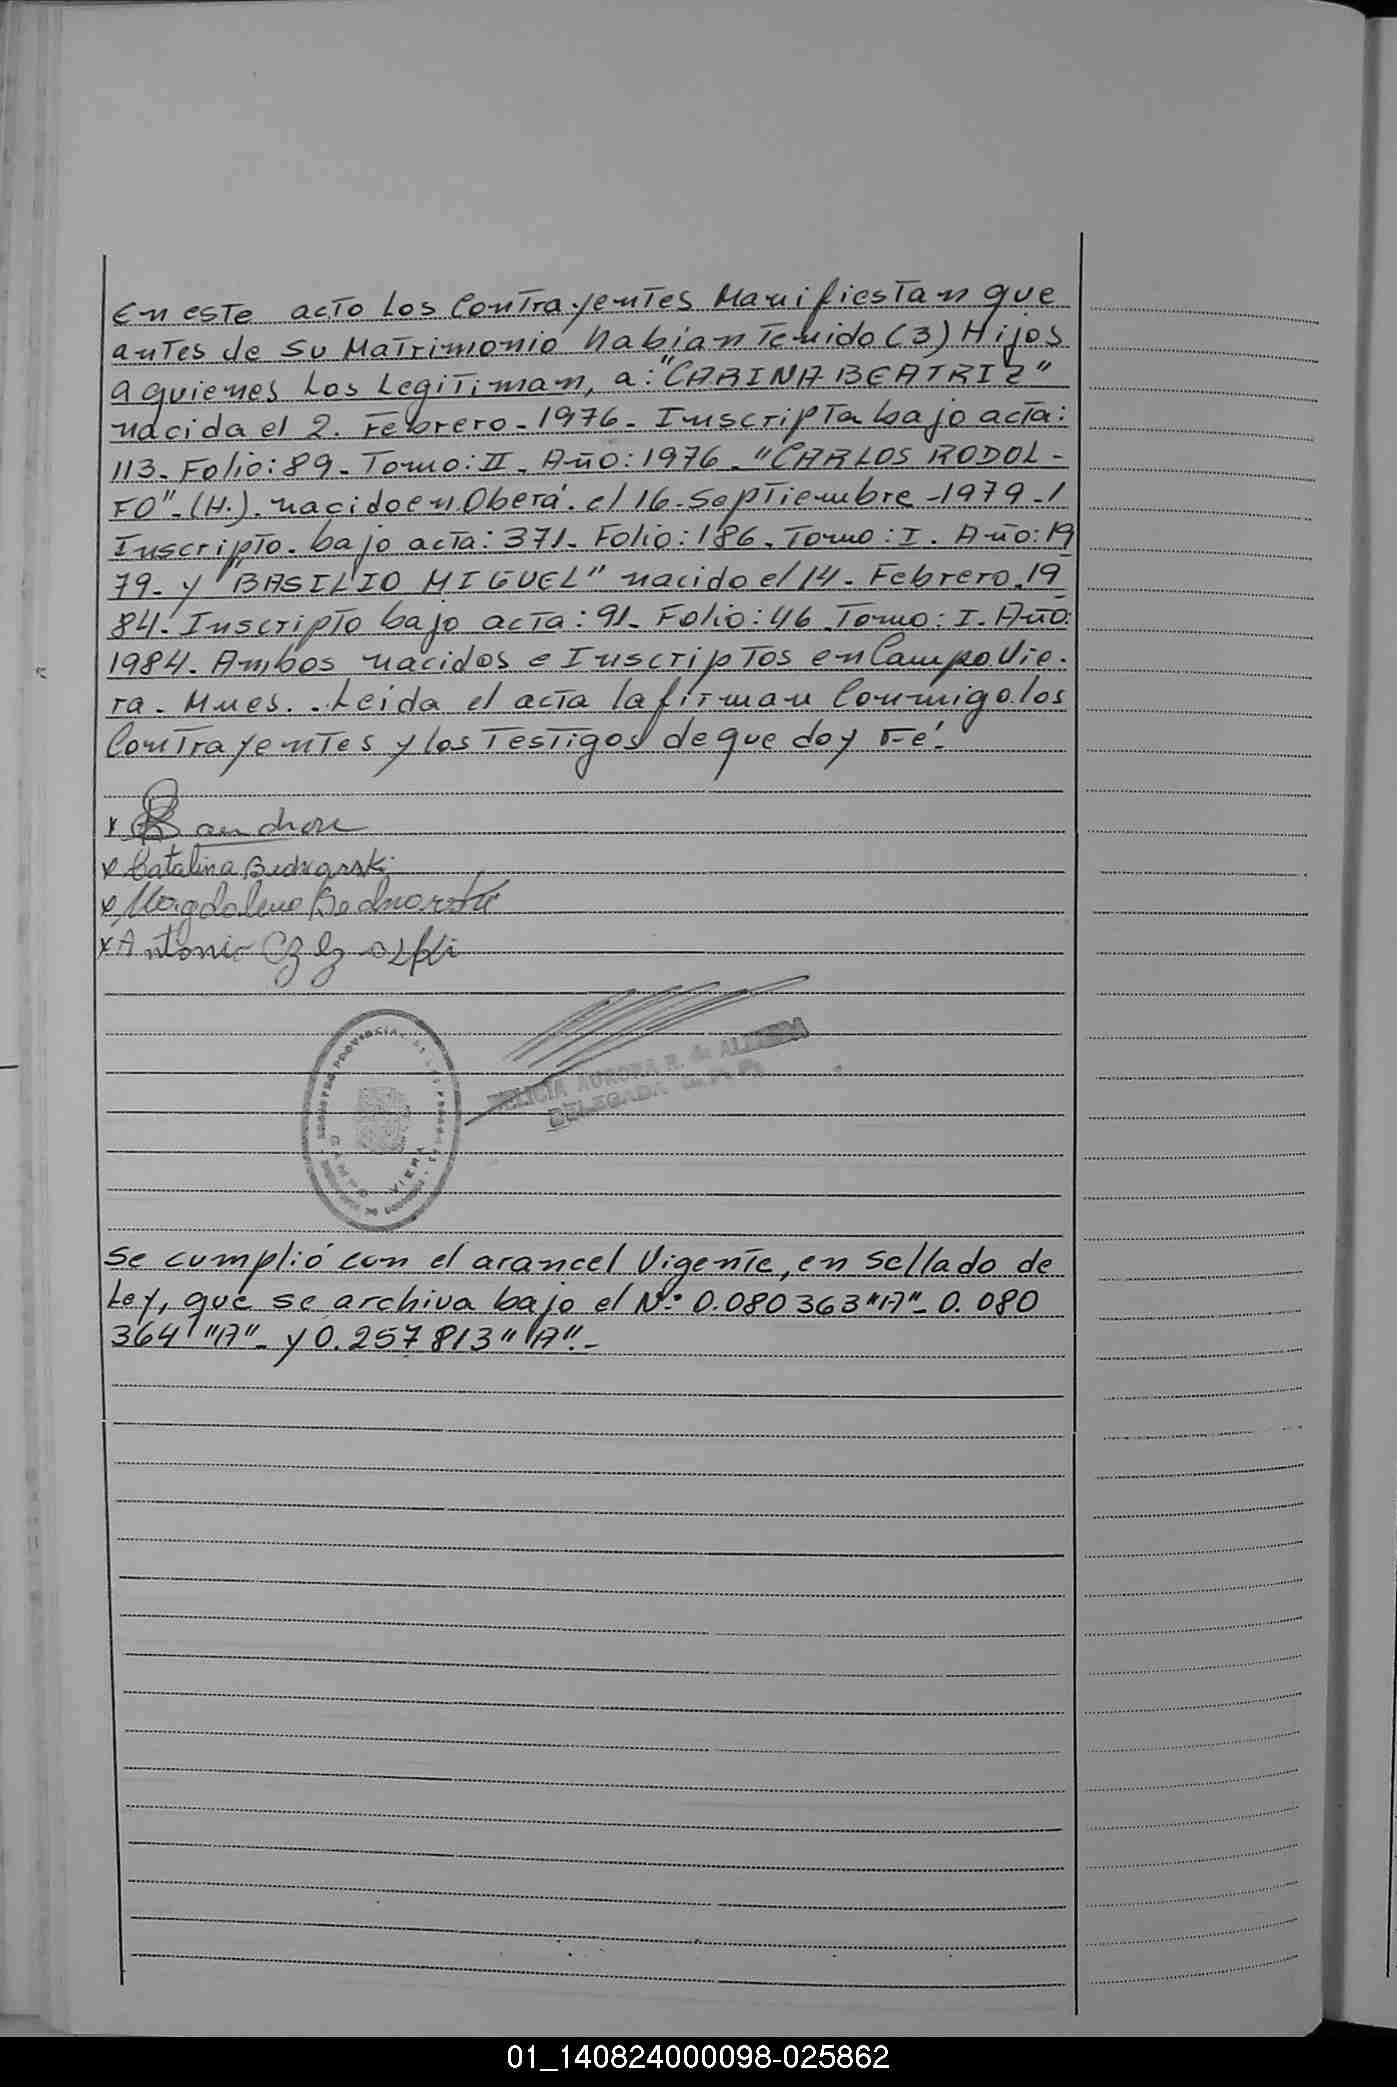 En este acto los Contrayentes Manifiestan que
antes de su Matrimonio habian tenido (3) Hijos
a quienes los legitiman, a: "CARINA BEATRIZ"
nacida el 2. Febrero - 1976 - Inscripta bajo acta:
113 - Folio: 89 - Tomo: II - Año: 1976 - "CARLOS RODOL-
FO" - (H.). nacido en Oberá. el 16 - Septiembre - 1979 - 1
Inscripto. bajo acta: 371 - Folio: 186 - Tomo: I. Año: 19
79 - y "BASILIO MIGUEL" nacido el 14 - Febrero - 19
84. Inscripto bajo acta: 91 - Folio: 46 - Tomo: I. Año:
1984. Ambos nacidos e Inscriptos en Campo Vie-
ra - Mnes. - Leida el acta la firman Conmigo los
Contrayentes y los Testigos de que doy Fé. -
x
x Catalina Bednarski
x Magdalena Bednarski
x Antonio
REGISTRO PROVINCIAL DE LAS PERSONAS
CAMPO VIERA
DELICIA AURORA R. de ALMEIDA
DELEGADA
Se cumplió con el arancel Vigente, en Sellado de
Ley, que se archiva bajo el N.° 0.080 363 "A" - 0.080
364 "A" - y 0.257 813 "A". -
01_140824000098-025862